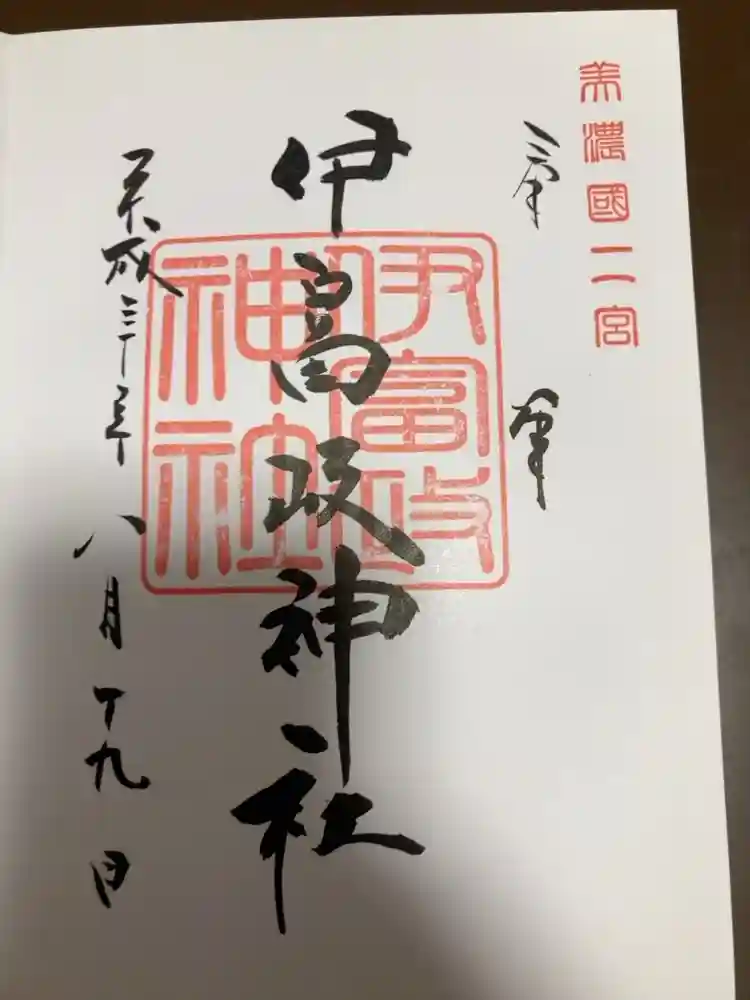 美濃國二宮
奉拝
伊富岐神社
伊富岐神社
平成三十年八月十九日